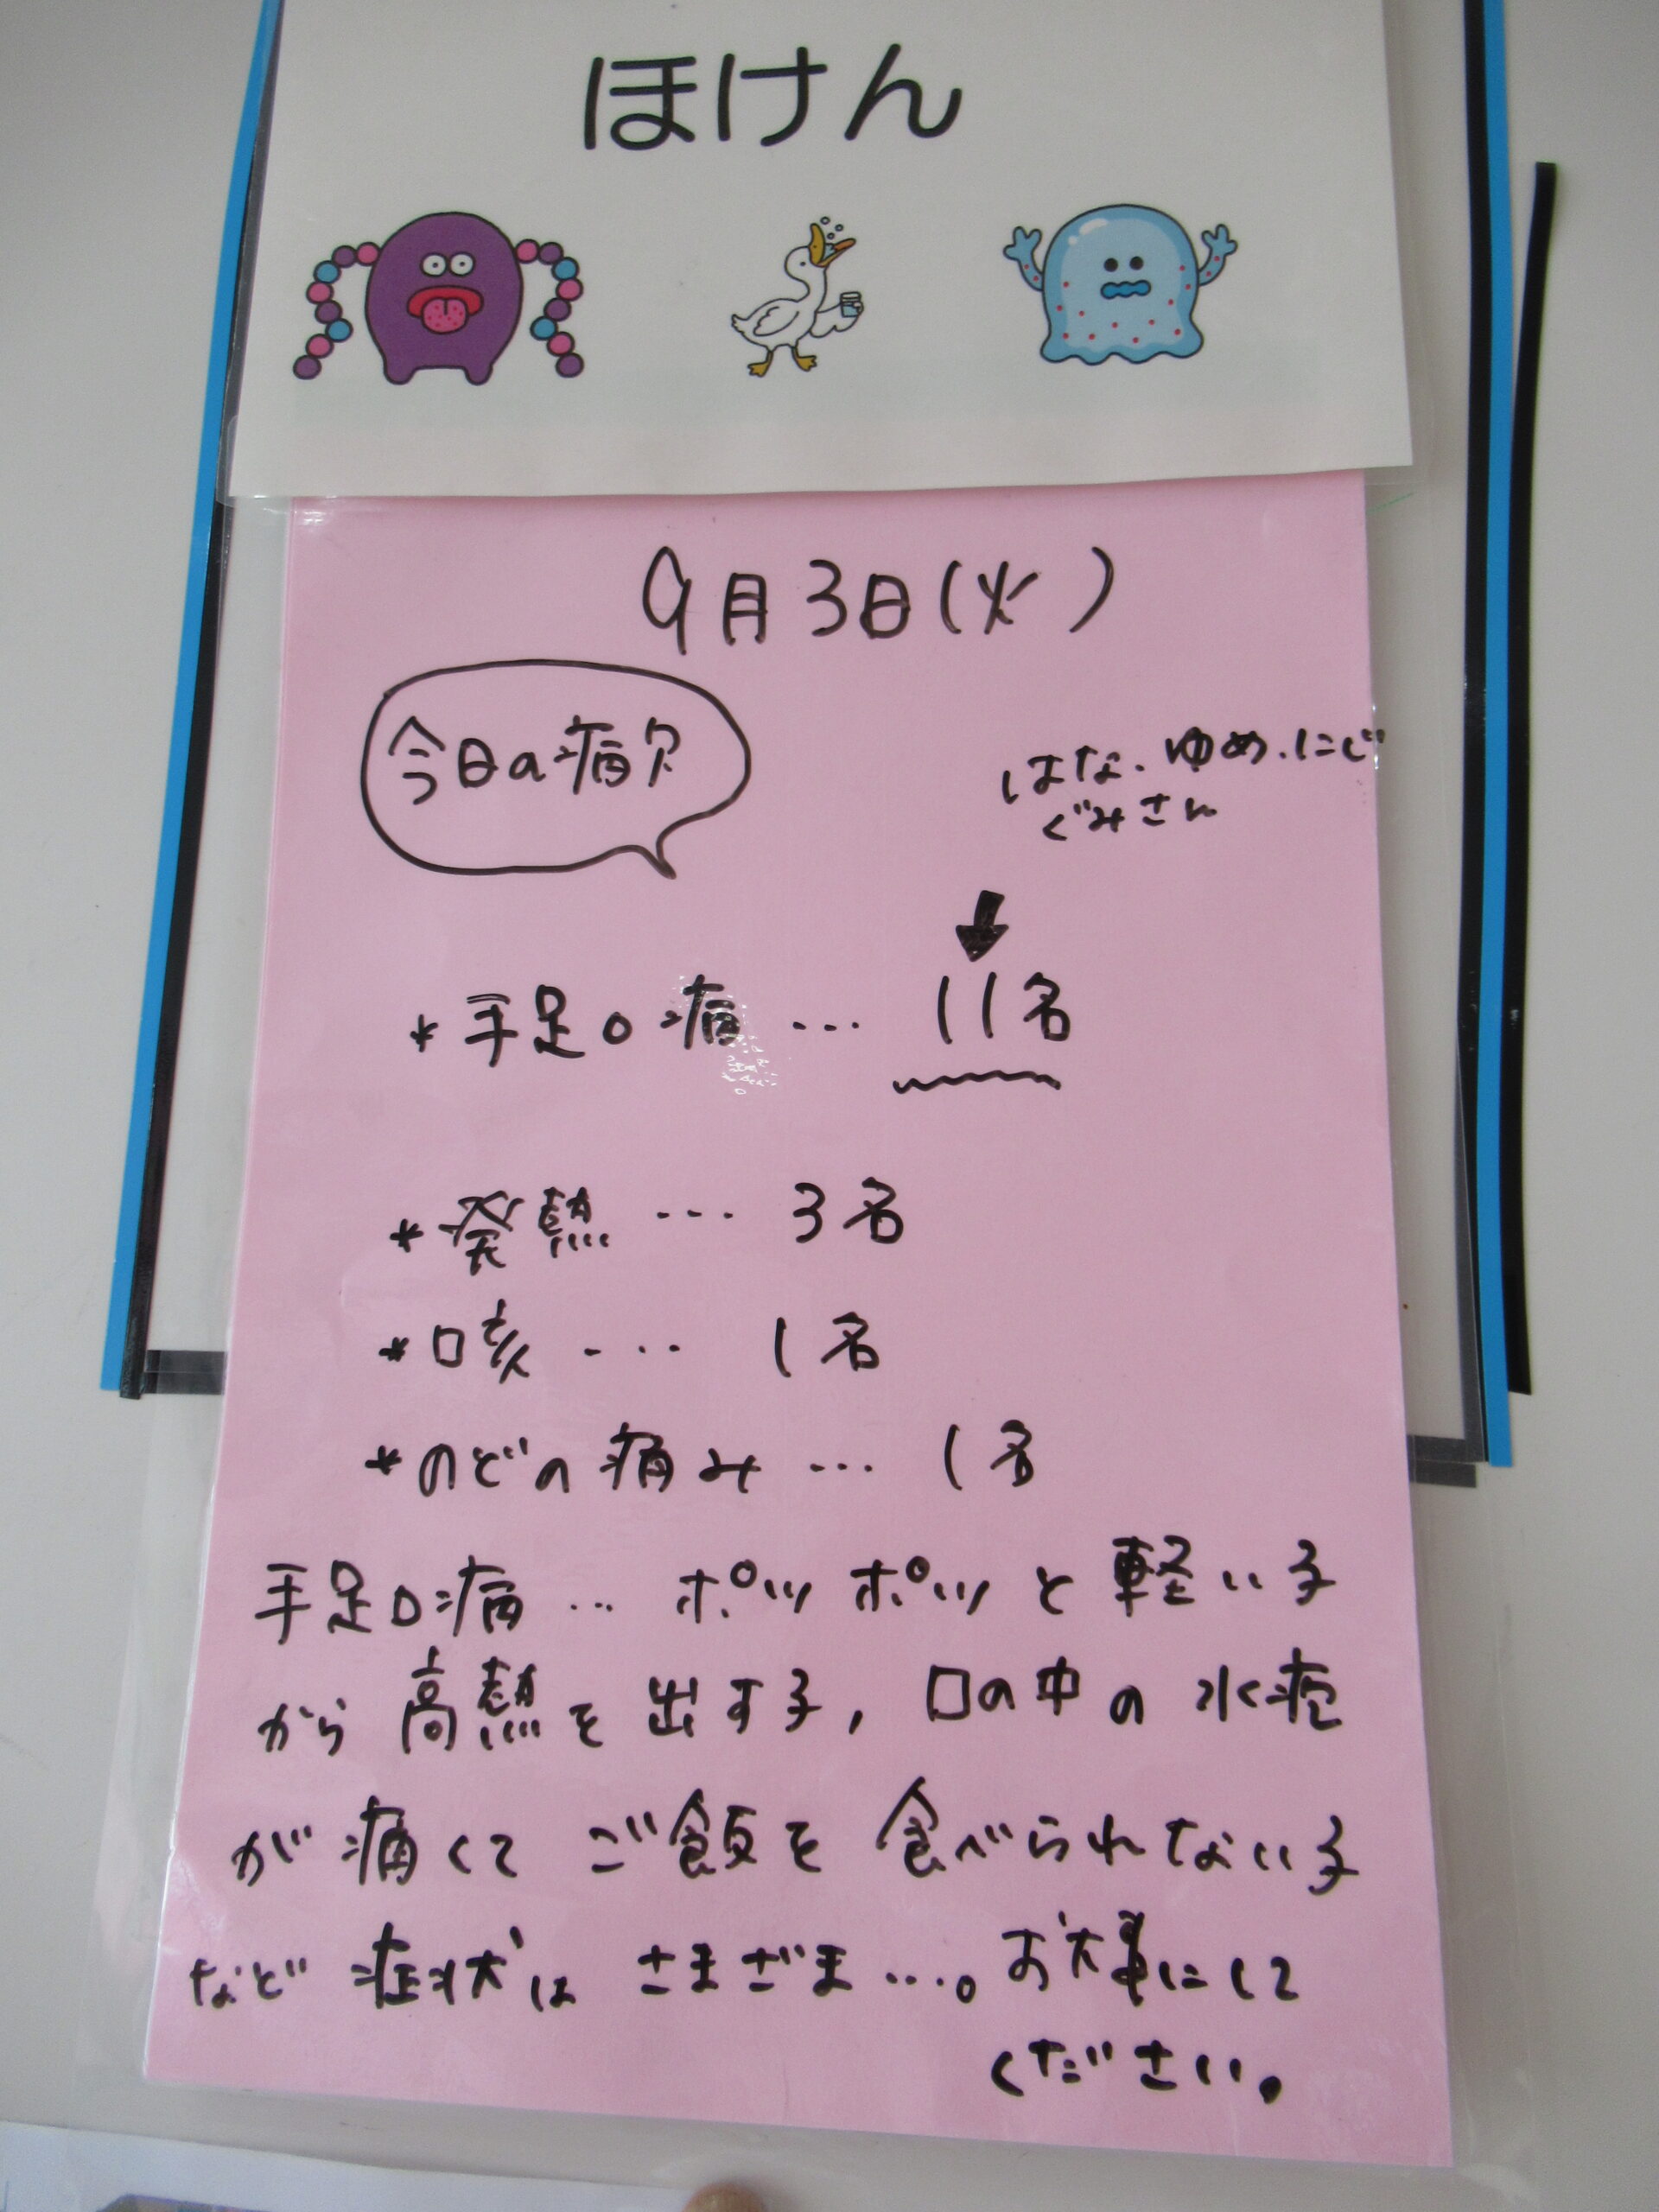 ほけん
9月3日(火)
今日の病欠
はな.ゆめ.にじ
ぐみさん
*手足口病… 11名
*発熱… 3名
*咳… 1名
*のどの痛み… 1名
手足口病… ポツポツと軽い子
から高熱を出す子,口の中の水疱
が痛くてご飯を食べられない子
など症状はさまざま…。お大事にして
ください。